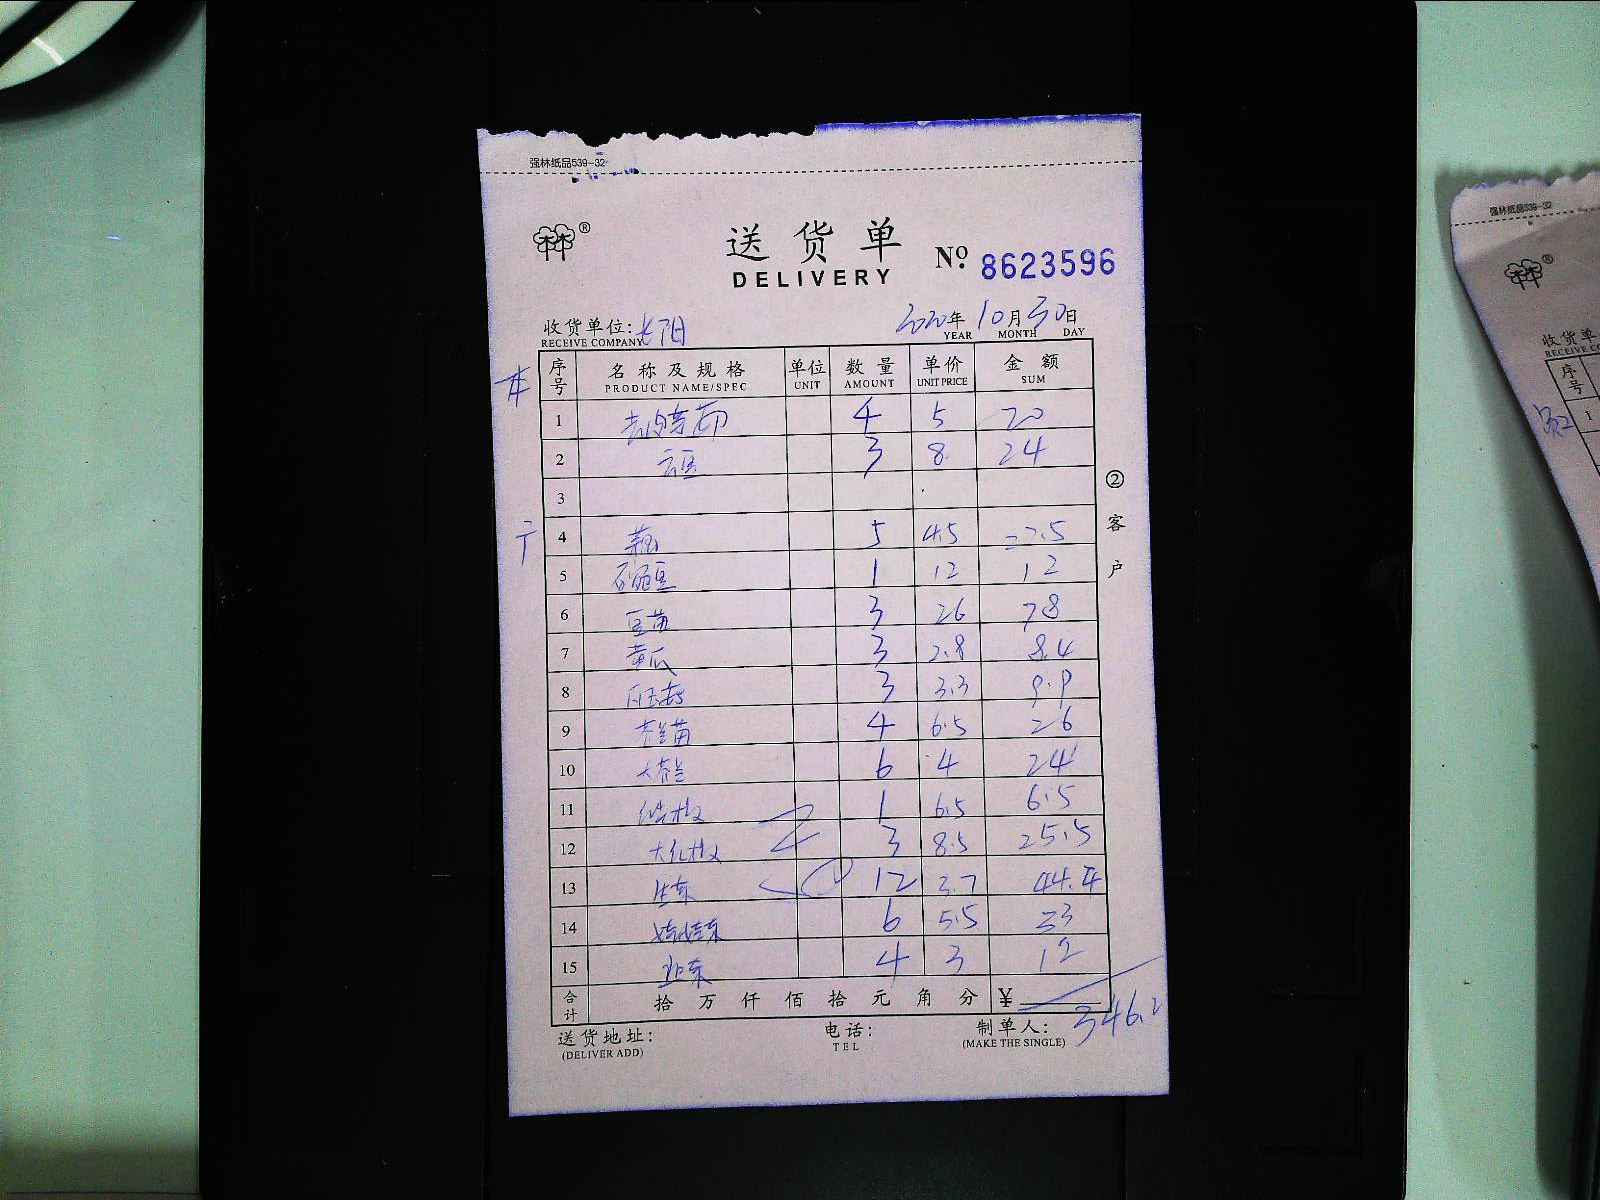 强林纸品539-32
送货单
DELIVERY
No. 8623596
收货单位: 长阳 2020年 10月 30日
RECEIVE COMPANY YEAR MONTH DAY
序号 名称及规格 单位 数量 单价 金额
PRODUCT NAME/SPEC UNIT AMOUNT UNIT PRICE SUM
1 去皮 4 5 20
2 云豆 3 8 24
3
4 5 4.5 22.5
5 豌豆 1 12 12
6 豆苗 3 26 78
7 黄瓜 3 2.8 8.4
8 3 3.3 9.9
9 苗 4 6.5 26
10 大 6 4 24
11 椒 1 6.5 6.5
12 大红椒 3 8.5 25.5
13 生菜 12 3.7 44.4
14 娃娃菜 6 5.5 33
15 韭菜 4 3 12
合计 拾 万 仟 佰 拾 元 角 分 ¥ 346.2
送货地址: 电话: 制单人:
(DELIVER ADD) TEL (MAKE THE SINGLE)
② 客户
强林纸品539-32
收货单
RECEIVE CO
序号
1